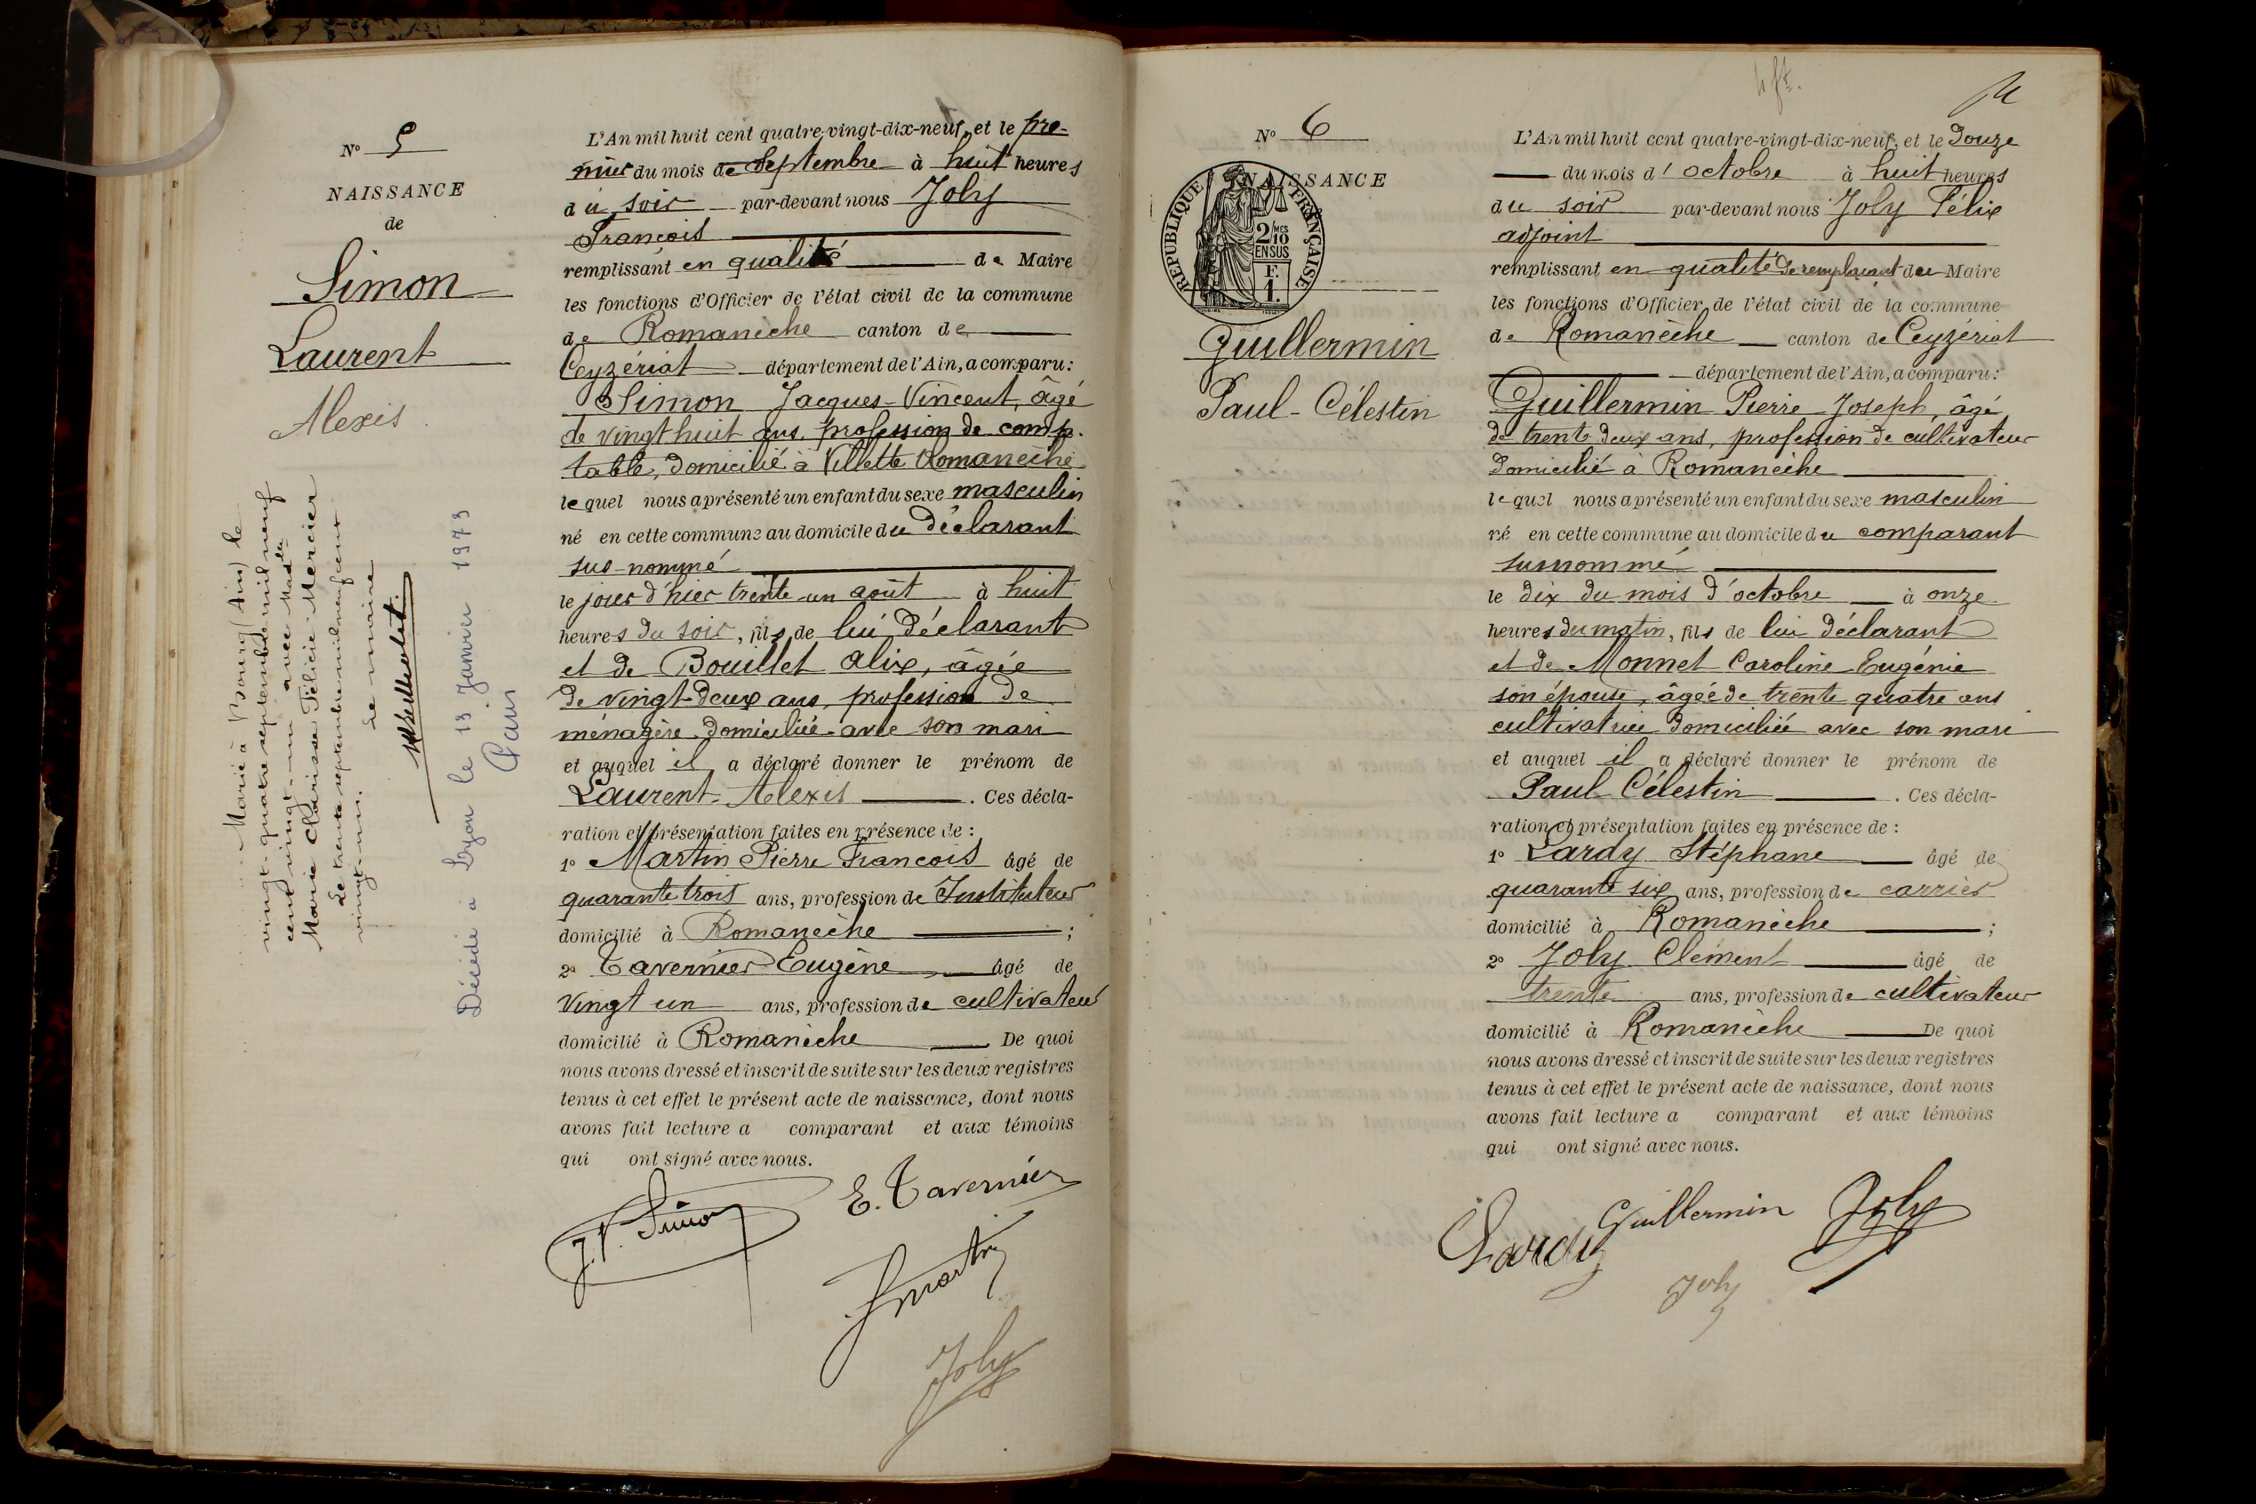 N° 5
NAISSANCE
de
Simon
Laurent
Alexis
Marié à Bourg (Ain) le
vingt-quatre septembre mil neuf
cent vingt-un avec Mad^lle
Marie Clarisse Félicie Mercier
Le trente septembre mil neuf cent
vingt-un.
Le maire
Décédé à Lyon le 13 Janvier 1973
L'An mil huit cent quatre-vingt-dix-neuf, et le pre-
mier du mois de Septembre à huit heures
du soir par-devant nous Joly
François
remplissant en qualité de Maire
les fonctions d'Officier de l'état civil de la commune
de Romanèche canton de
Ceyzériat département de l'Ain, a comparu:
Simon Jacques-Vincent, âgé
de vingt huit ans, profession de comp-
table, domicilié à Villette Romaneche
lequel nous a présenté un enfant du sexe masculin
né en cette commune au domicile du déclarant
sus-nommé
le jour d'hier trente-un août à huit
heures du soir, fils de lui déclarant
et de Bouillet Alix, âgée
de vingt-deux ans, profession de
ménagère domiciliée avec son mari
et auquel il a déclaré donner le prénom de
Laurent-Alexis. Ces décla-
ration et présentation faites en présence de :
1° Martin Pierre François âgé de
quarante trois ans, profession de Instituteur
domicilié à Romanèche ;
2° Tavernier Eugène âgé de
vingt un ans, profession de cultivateur
domicilié à Romanèche De quoi
nous avons dressé et inscrit de suite sur les deux registres
tenus à cet effet le présent acte de naissance, dont nous
avons fait lecture a comparant et aux témoins
qui ont signé avec nous.
J.V. Simon
E. Tavernier
Martin
Joly
N° 6
NAISSANCE
REPUBLIQUE FRANÇAISE
2/10 MES
EN SUS
F.
1.
Guillermin
Paul-Célestin
L'An mil huit cent quatre-vingt-dix-neuf, et le Douze
du mois d'octobre à huit heures
du soir par-devant nous Joly Félix
adjoint
remplissant en qualité de remplaçant du Maire
les fonctions d'Officier de l'état civil de la commune
de Romanèche canton de Ceyzériat
département de l'Ain, a comparu:
Guillermin Pierre Joseph, âgé
de trente deux ans, profession de cultivateur
domicilié à Romanèche
lequel nous a présenté un enfant du sexe masculin
né en cette commune au domicile du comparant
surnommé
le dix du mois d'octobre à onze
heures du matin, fils de lui déclarant
et de Monnet Caroline Eugénie
son épouse, âgée de trente quatre ans
cultivatrice domiciliée avec son mari
et auquel il a déclaré donner le prénom de
Paul Célestin. Ces décla-
ration et présentation faites en présence de :
1° Lardy Stéphane âgé de
quarante six ans, profession de carrier
domicilié à Romanèche ;
2° Joly Clément âgé de
trente ans, profession de cultivateur
domicilié à Romanèche De quoi
nous avons dressé et inscrit de suite sur les deux registres
tenus à cet effet le présent acte de naissance, dont nous
avons fait lecture a comparant et aux témoins
qui ont signé avec nous.
Lardy Guillermin Joly
Joly